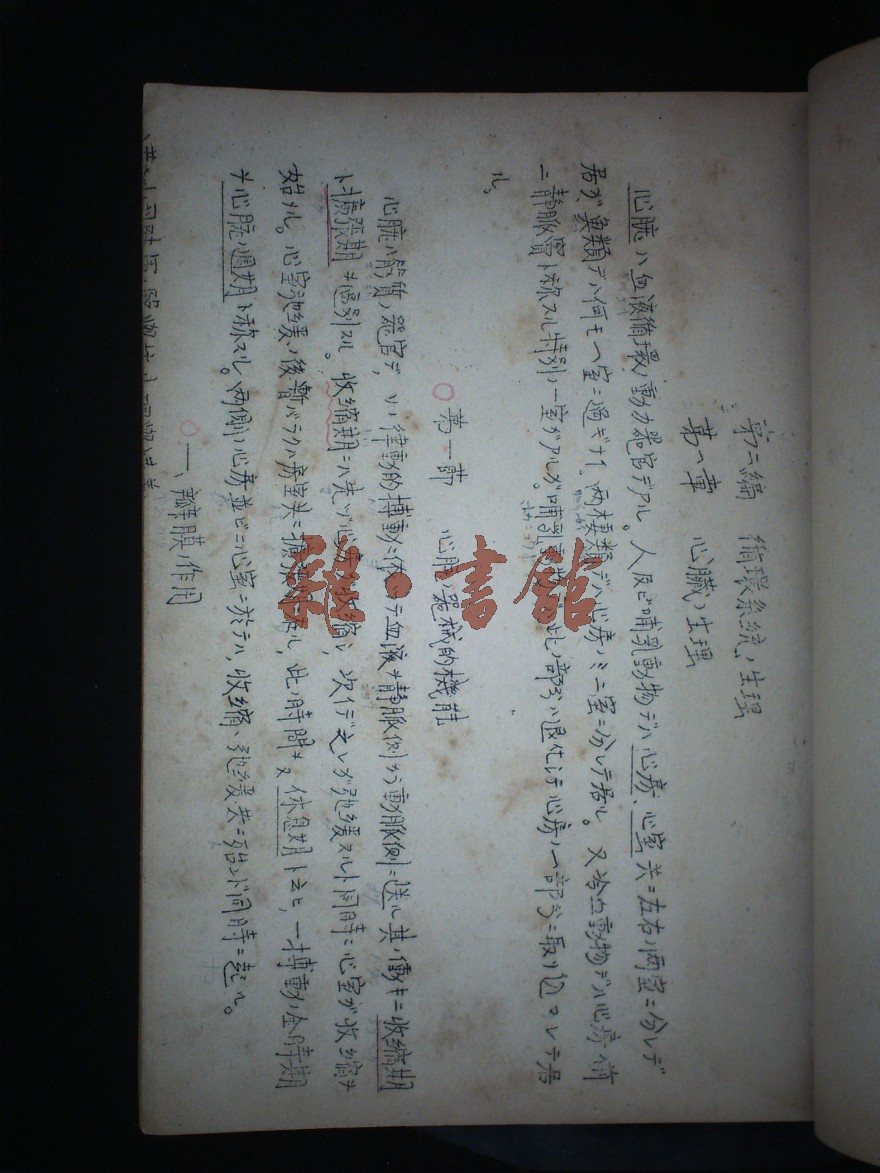 第二編 循環系統ノ生理
第一章 心臓ノ生理
心臓ハ血液循環ノ動力器官デアル。人及ビ哺乳動物デハ心房、心室共ニ左右ノ両室ニ分レテ
居ガ、魚類デハ何モ一室ニ過ギナイ。両棲類デハ心房ノミ二室ニ分レテ居ル。又冷血動物デハ心房ノ前
ニ静脈竇ト称スル特別ノ一室ガアルガ哺乳動物 此ノ部分ハ退化シテ心房ノ一部分ニ取リ込マレテ居
ル、
第一節 心臓ノ器械的機能
心臓ハ筋質ノ器官デ、ソノ律動的搏動ニ依ッテ血液ヲ静脈側カラ動脈側ニ送ル其ノ働キニ収縮期
ト擴張期ヲ區別スル。収縮期ニハ先ヅ心房ガ収縮シ、次イデ之レガ弛緩スルト同時ニ心室ガ収縮ヲ
始メル。心室弛緩ノ後暫バラクハ房室共ニ擴張 、此ノ時間ヲ又休息期ト云ヒ、一搏動ノ全時期
ヲ心臓ノ週期ト称スル。両側ノ心房並ビニ心室ニ於テハ、収縮、弛緩共ニ殆ンド同時ニ起ル。
一、瓣膜ノ作用
龍•書館